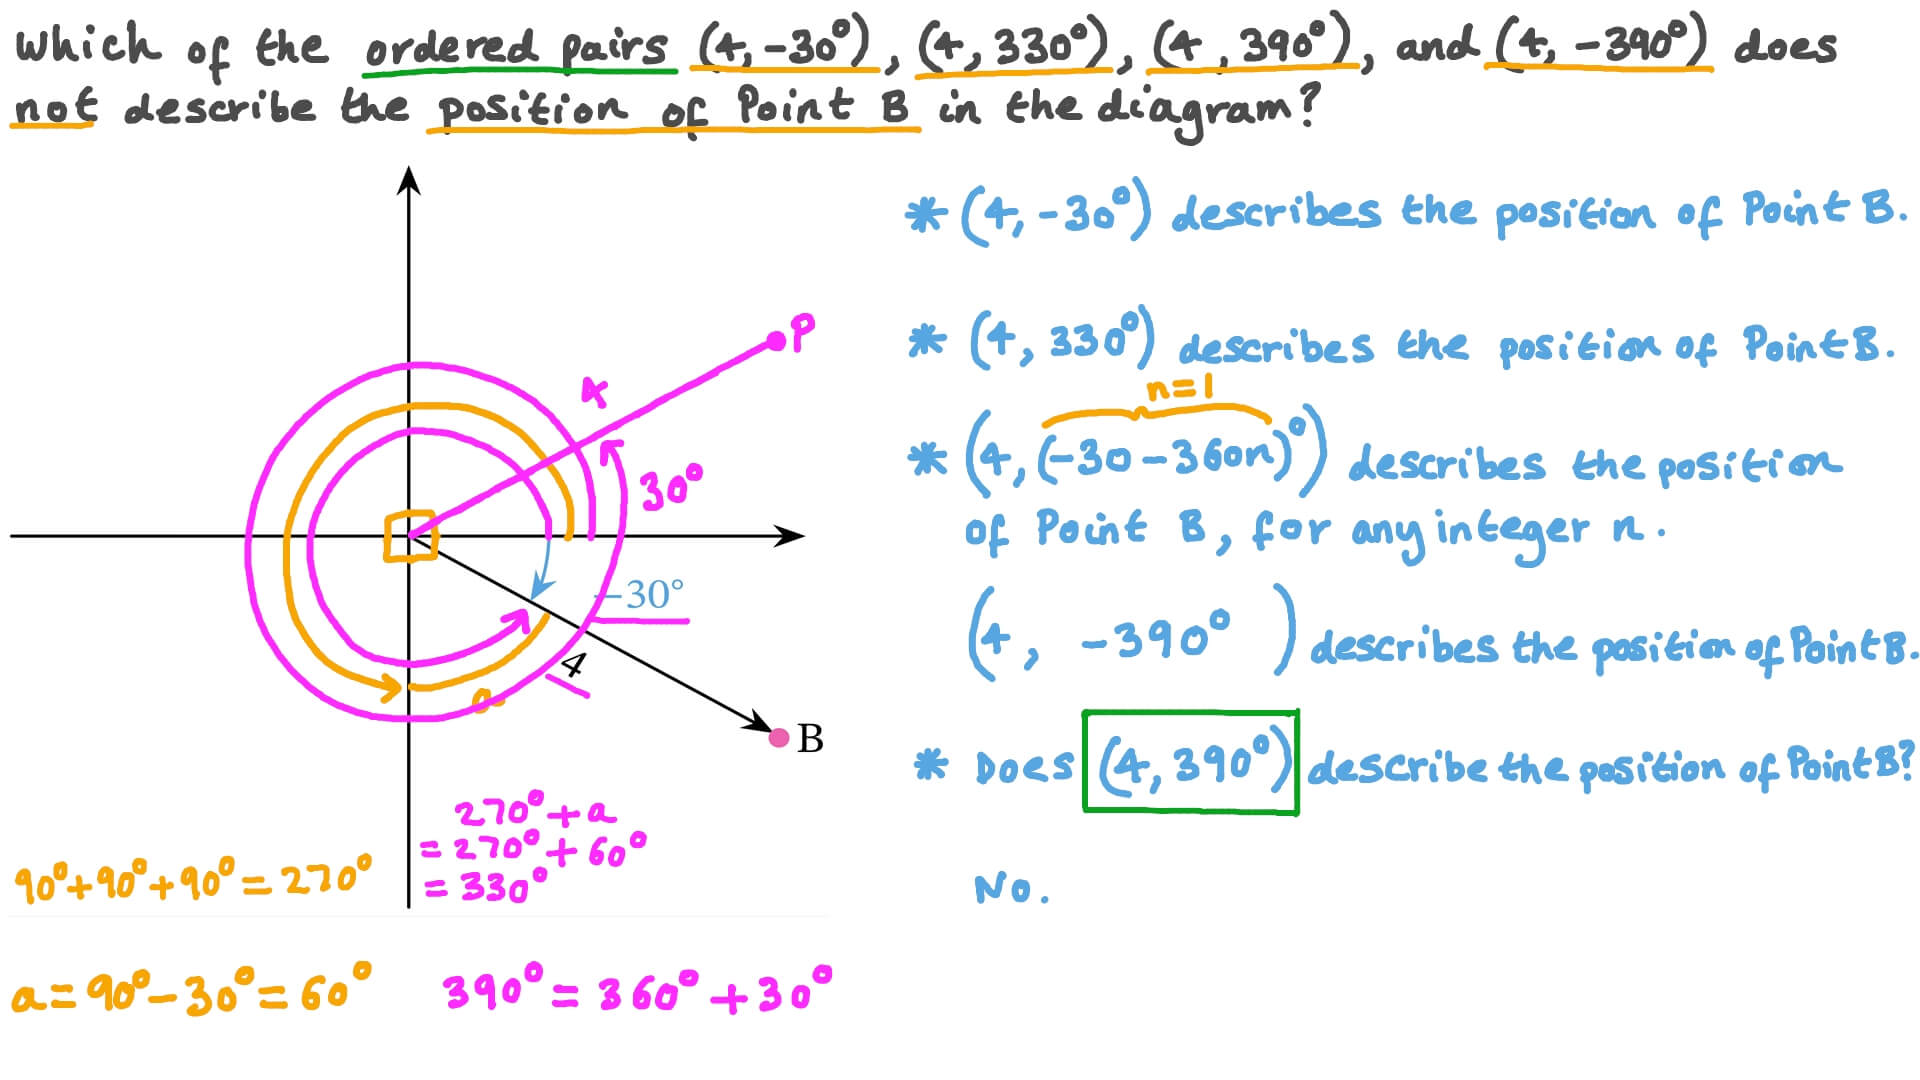 Which of the ordered pairs (4, -30°), (4, 330°), (4, 390°), and (4, -390°) does
not describe the position of Point B in the diagram?
* (4, -30°) describes the position of Point B.
P
* (4, 330°) describes the position of Point B.
n=1
4
* (4, (-30-360n)°) describes the position
30°
of Point B, for any integer n.
-30°
(4, -390°) describes the position of Point B.
4
a
B
* Does (4, 390°) describe the position of Point B?
270° + a
= 270° + 60°
90°+90°+90°=270°
= 330°
No.
a=90°-30°=60°
390° = 360° + 30°